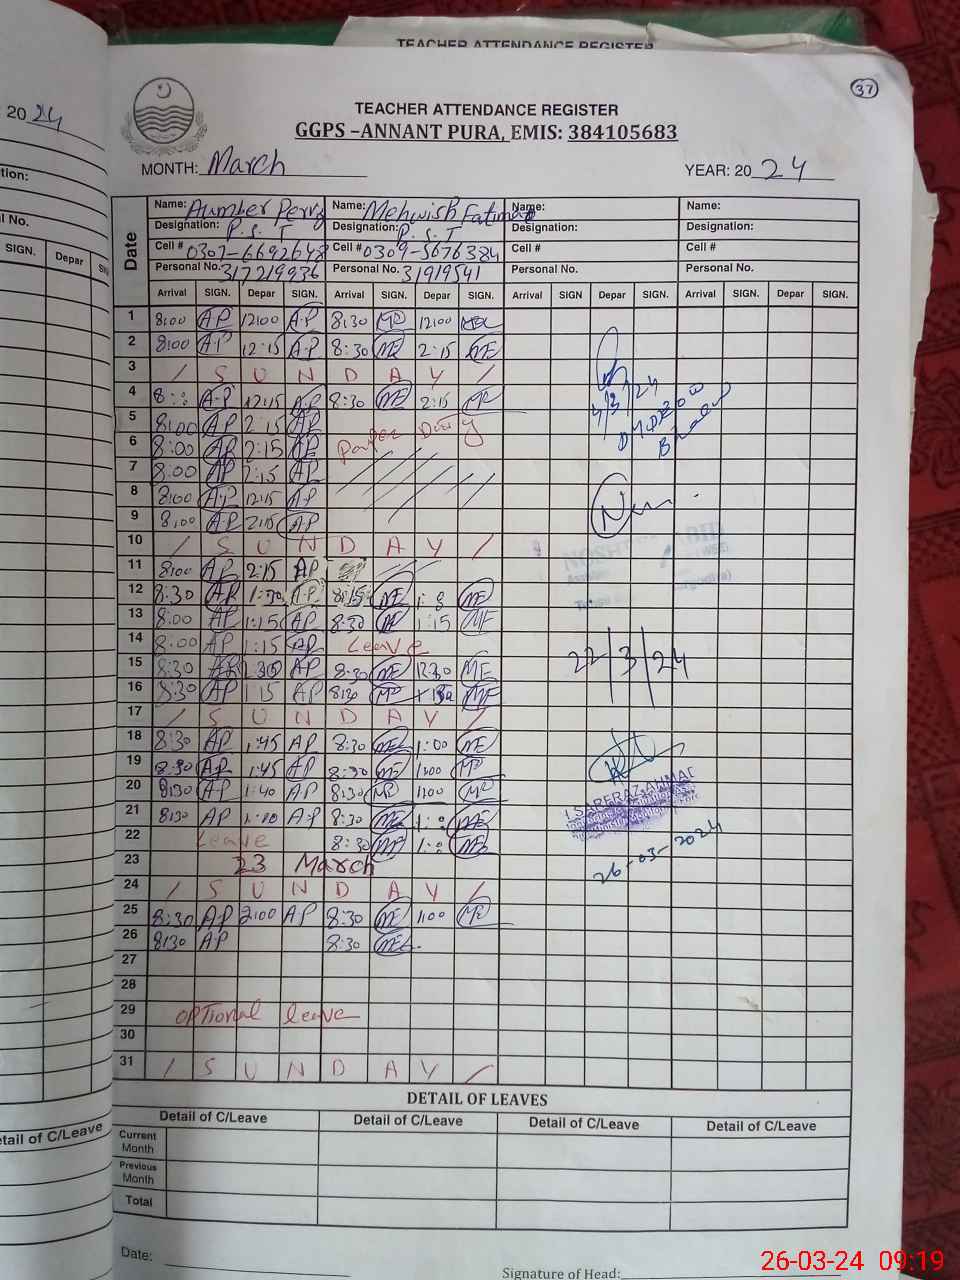 TEACHER ATTENDANCE REGISTER
37
TEACHER ATTENDANCE REGISTER
GGPS –ANNANT PURA, EMIS: 384105683
MONTH: March YEAR: 2024
Date
Name: Aumber Perv Name: Mehwish Fatima Name: Name:
Designation: P.S.T Designation: P.S.T Designation: Designation:
Cell # 0307-6692648 Cell # 0309-5676384 Cell # Cell #
Personal No. 317219936 Personal No. 31919541 Personal No. Personal No.
Arrival SIGN. Depar SIGN. Arrival SIGN. Depar SIGN. Arrival SIGN Depar SIGN. Arrival SIGN. Depar SIGN.
1 8:00 AP 12:00 AP 8:30 12:00
2 8:00 AP 12:15 AP 8:30 ME 2:15 ME
3 / S U N D A Y /
4 8:: AP 12:15 AP 8:30 ME 2:15
4/3/24
5 8:00 AP 2:15 AP
6 8:00 AP 2:15 AP Paper Duty
7 8:00 AP 2:15 AP
8 8:00 AP 12:15 AP
9 8:00 AP 2:15 AP
10 / S U N D A Y /
11 8:00 AP 2:15 AP
12 8:30 AP AP 8:15 ME ME
13 8:00 AP 1:15 AP 8:30 1:15 ME
14 8:00 AP 1:15 AP Leave
22/3/24
15 8:30 AP AP 8:30 ME 12:30 ME
16 8:30 AP 1:15 AP 8:30 ME
17 / S U N D A Y /
18 8:30 AP 1:45 AP 8:30 ME 1:00 ME
19 8:30 AP 1:45 AP 8:30 ME 1:00
20 8:30 AP 1:40 AP 8:30 1:00
21 8:30 AP AP 8:30
22 Leave 8:30
23 23 March
26-03-2024
24 / S U N D A Y /
25 8:30 AP 2:00 AP 8:30 ME 1:00
26 8:30 AP 8:30 ME
27
28
29 OPTional leave
30
31 / S U N D A Y /
DETAIL OF LEAVES
Detail of C/Leave Detail of C/Leave Detail of C/Leave Detail of C/Leave
Current Month
Previous Month
Total
Date:
Signature of Head:
: 2024
tion:
l No.
SIGN. Depar
etail of C/Leave
26-03-24 09:19